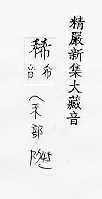 精嚴新集大藏音
稀
希
音
禾部